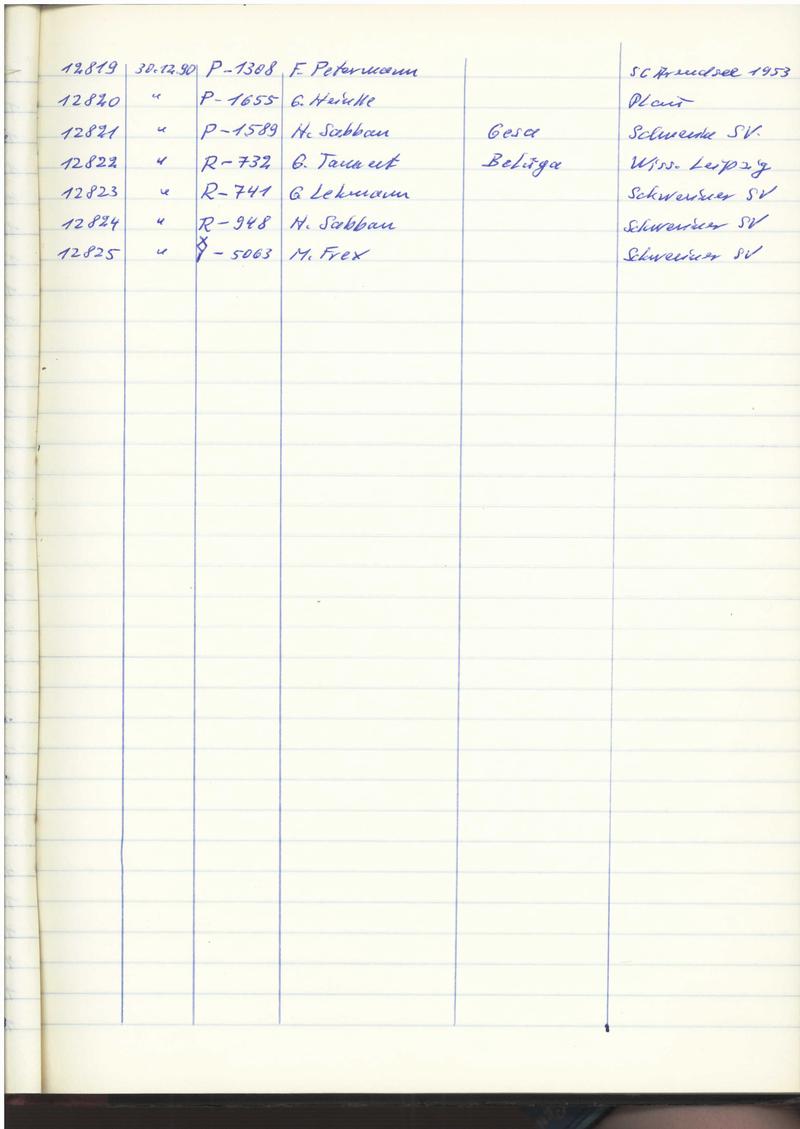 12819 30.12.90 P-1308 F. Petermann SC Arendsee 1953
12820 " P-1655 G. Heinke Plau
12821 " P-1589 H. Sabban Gesa SV.
12822 " R-732 G. Tannert Beluga Wiss. Leipzig
12823 " R-741 G Lehmann Schweriner SV
12824 " R-948 H. Sabban Schweriner SV
12825 " - 5063 M. Frex Schweriner SV